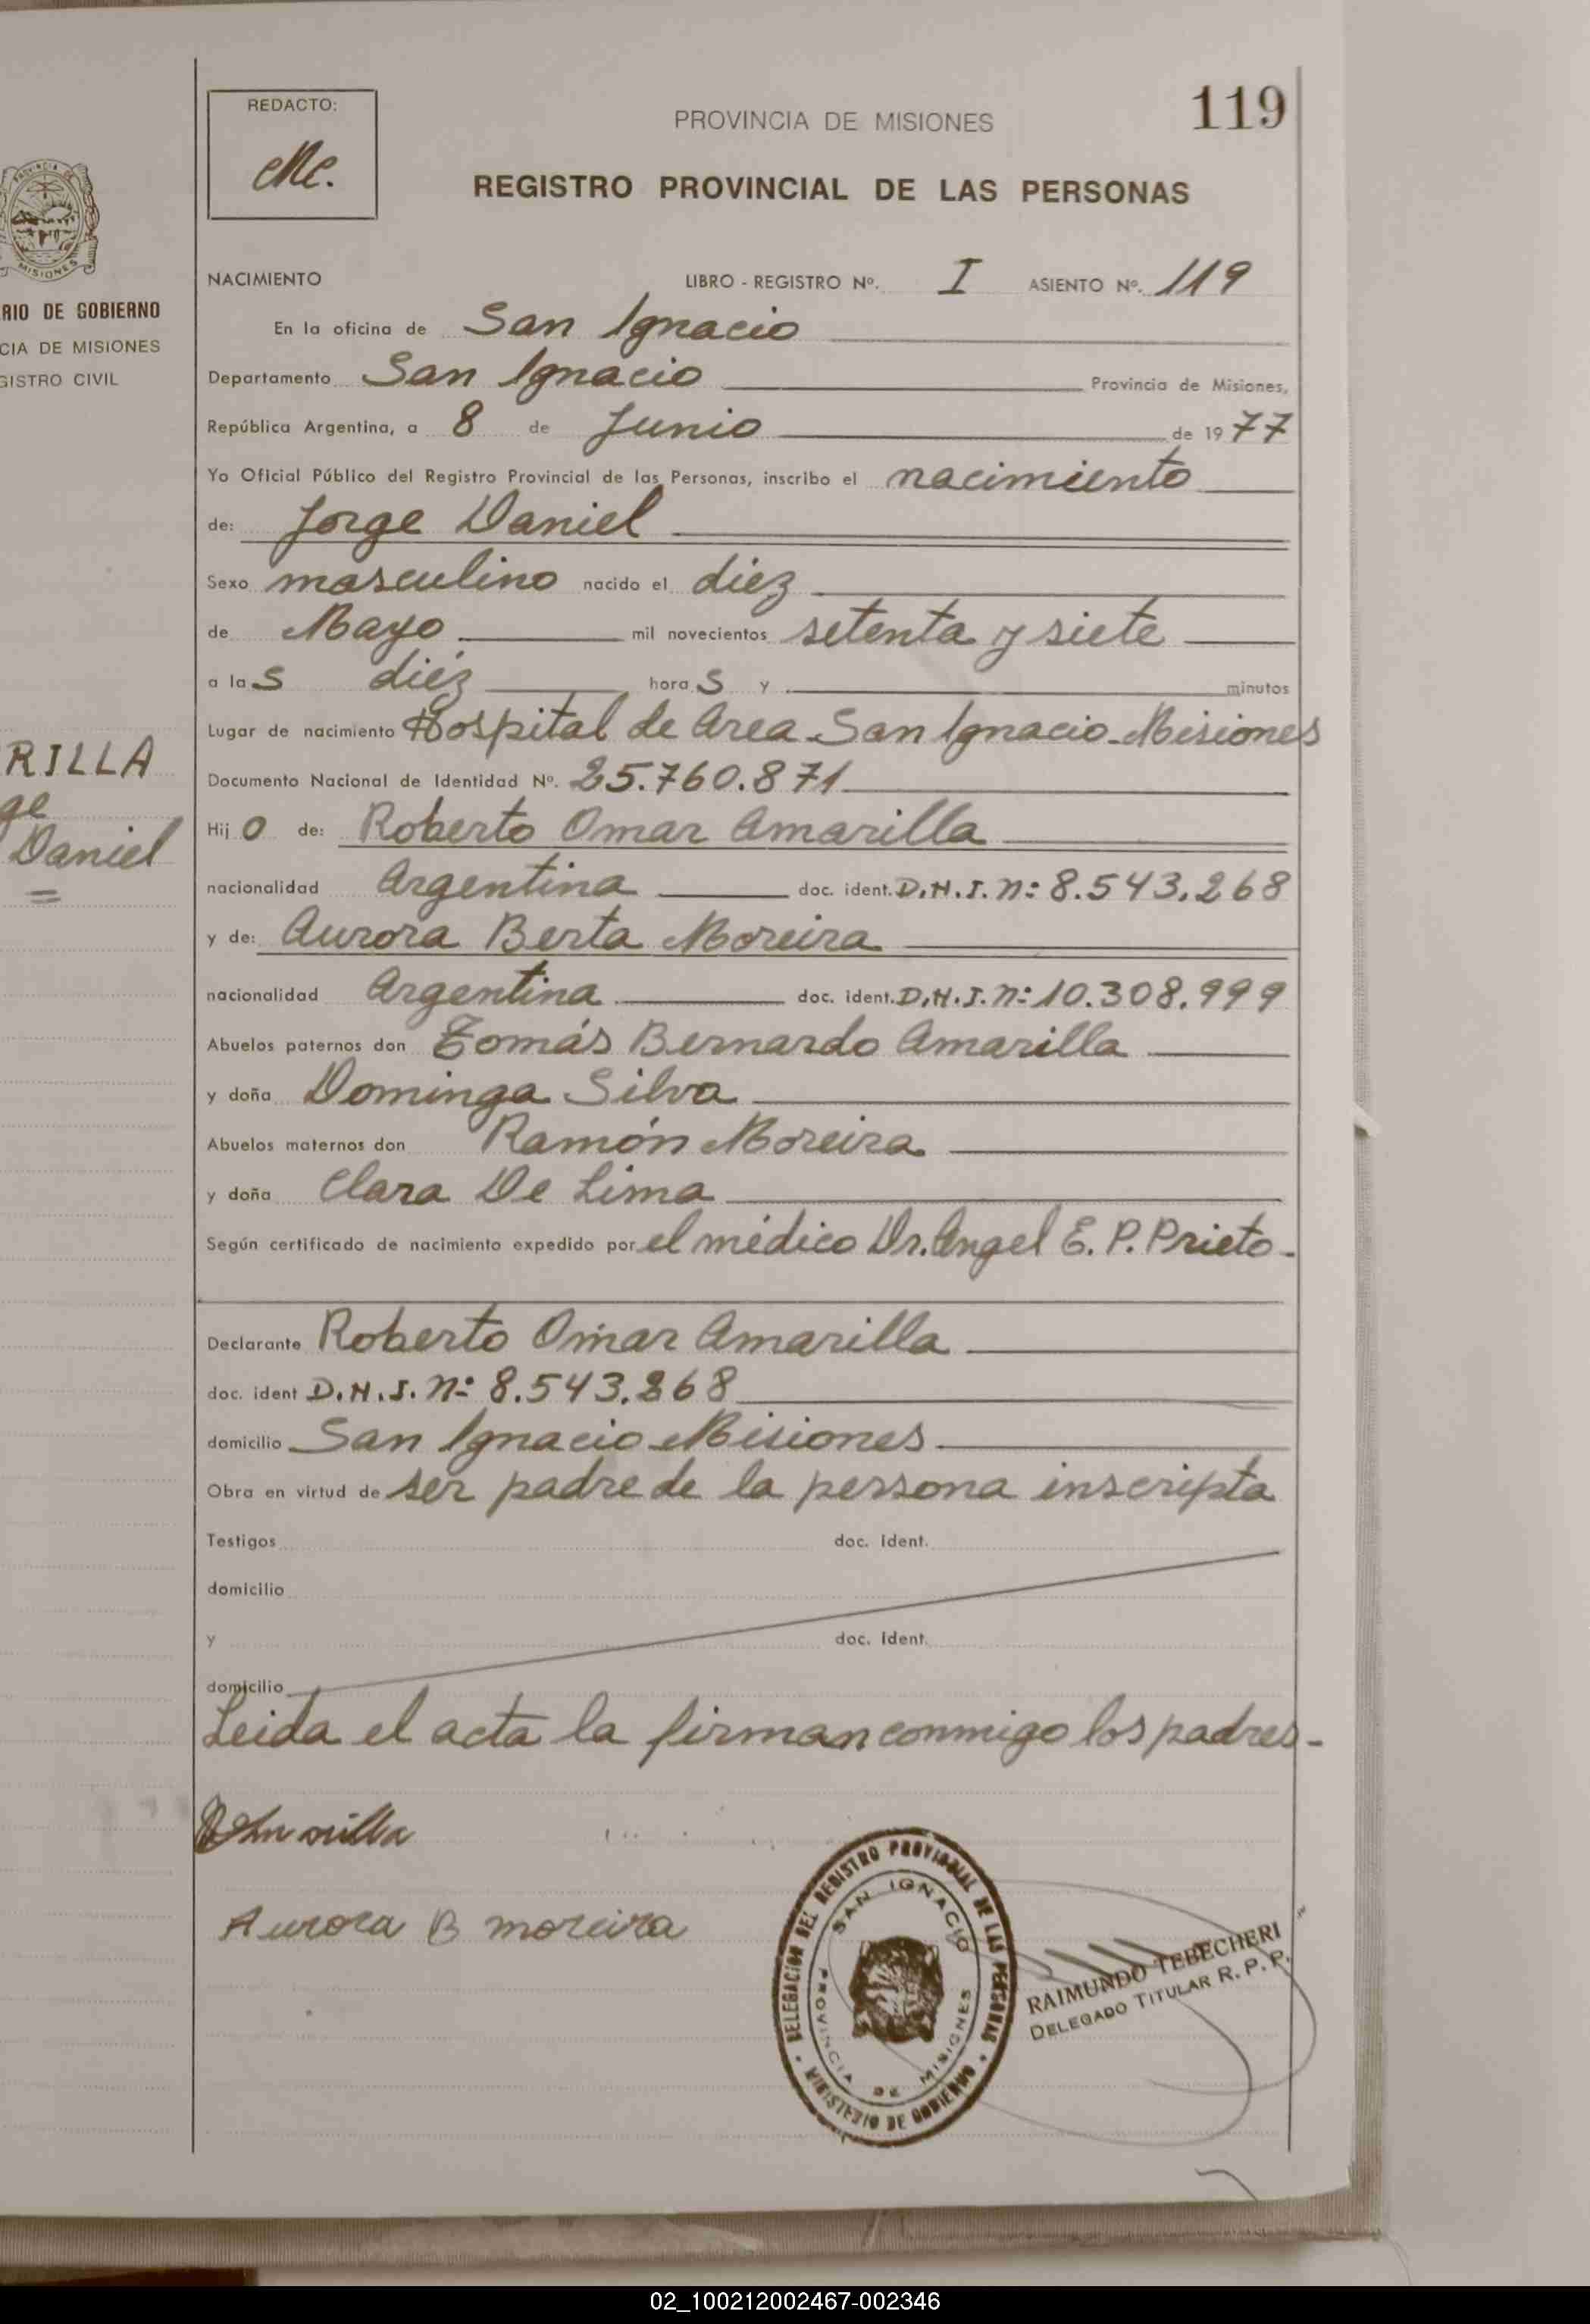 REDACTO:
Mc.
119
PROVINCIA DE MISIONES
REGISTRO PROVINCIAL DE LAS PERSONAS
MISIONES
RIO DE GOBIERNO
CIA DE MISIONES
GISTRO CIVIL
RILLA
ge
Daniel
NACIMIENTO LIBRO - REGISTRO Nº. I ASIENTO Nº. 119
En la oficina de San Ignacio
Departamento San Ignacio Provincia de Misiones,
República Argentina, a 8 de Junio de 1977
Yo Oficial Público del Registro Provincial de las Personas, inscribo el nacimiento
de: Jorge Daniel
Sexo masculino nacido el diez
de Mayo mil novecientos setenta y siete
a las diéz horas y minutos
Lugar de nacimiento Hospital de Area San Ignacio-Misiones
Documento Nacional de Identidad Nº. 25.760.871
Hijo de: Roberto Omar Amarilla
nacionalidad Argentina doc. ident. D.N.I. nº 8.543.268
y de: Aurora Berta Moreira
nacionalidad Argentina doc. ident. D.N.I. nº 10.308.999
Abuelos paternos don Tomás Bernardo Amarilla
y doña Dominga Silva
Abuelos maternos don Ramón Moreira
y doña Clara De Lima
Según certificado de nacimiento expedido por el médico Dr. Angel E. P. Prieto.
Declarante Roberto Omar Amarilla
doc. ident D.N.I. nº 8.543.268
domicilio San Ignacio-Misiones
Obra en virtud de ser padre de la persona inscripta
Testigos doc. ident.
domicilio
y doc. ident.
domicilio
Leida el acta la firman conmigo los padres-
Aurora B moreira
DELEGACION DEL REGISTRO PROVINCIAL DE LAS PERSONAS
MINISTERIO DE GOBIERNO
SAN IGNACIO
PROVINCIA DE MISIONES
RAIMUNDO TEBECHERI
DELEGADO TITULAR R. P. P.
02_100212002467-002346